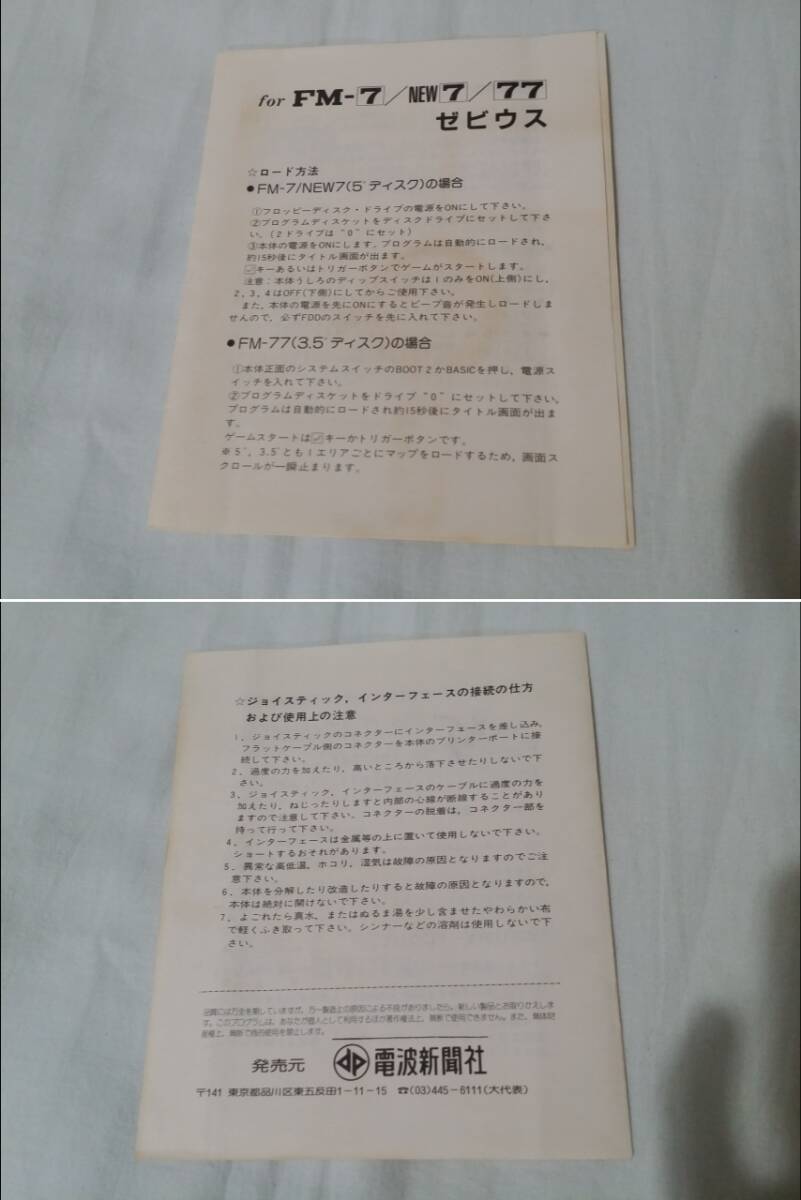 for FM-7/NEW7/77
ゼビウス
☆ロード方法
●FM-7/NEW7(5″ディスク)の場合
①フロッピーディスク・ドライブの電源をONにして下さい。
②プログラムディスケットをディスクドライブにセットして下さ
い。(2ドライブは“0”にセット)
③本体の電源をONにします。プログラムは自動的にロードされ、
約15秒後にタイトル画面が出ます。
キーあるいはトリガーボタンでゲームがスタートします。
注意:本体うしろのディップスイッチは1のみをON(上側)にし、
2, 3, 4はOFF(下側)にしてからご使用下さい。
また、本体の電源を先にONにするとビープ音が発生しロードしま
せんので、必ずFDDのスイッチを先に入れて下さい。
●FM-77(3.5″ディスク)の場合
①本体正面のシステムスイッチのBOOT2かBASICを押し、電源ス
イッチを入れて下さい。
②プログラムディスケットをドライブ“0”にセットして下さい。
プログラムは自動的にロードされ約15秒後にタイトル画面が出ま
す。
ゲームスタートはキーかトリガーボタンです。
※5″, 3.5″とも1エリアごとにマップをロードするため、画面ス
クロールが一瞬止まります。
☆ジョイスティック, インターフェースの接続の仕方
および使用上の注意
1. ジョイスティックのコネクターにインターフェースを差し込み、
フラットケーブル側のコネクターを本体のプリンターポートに接
続して下さい。
2. 過度の力を加えたり、高いところから落下させたりしないで下
さい。
3. ジョイスティック, インターフェースのケーブルに過度の力を
加えたり、ねじったりしますと内部の心線が断線することがあり
ますので注意して下さい。コネクターの脱着は、コネクター部を
持って行って下さい。
4. インターフェースは金属等の上に置いて使用しないで下さい。
ショートするおそれがあります。
5. 異常な高低温、ホコリ、湿気は故障の原因となりますのでご注
意下さい。
6. 本体を分解したり改造したりすると故障の原因となりますので、
本体は絶対に開けないで下さい。
7. よごれたら真水、またはぬるま湯を少し含ませたやわらかい布
で軽くふき取って下さい。シンナーなどの溶剤は使用しないで下
さい。
品質には万全を期していますが、万一製造上の原因による不良がありましたら、新しい製品とお取りかえしま
す。このプログラムは、あなたが個人として利用するほか著作権法上、無断で使用できません。また、無体財
産権上、無断で商的使用を禁止します。
発売元 dp 電波新聞社
〒141 東京都品川区東五反田1-11-15 ☎(03)445-6111(大代表)